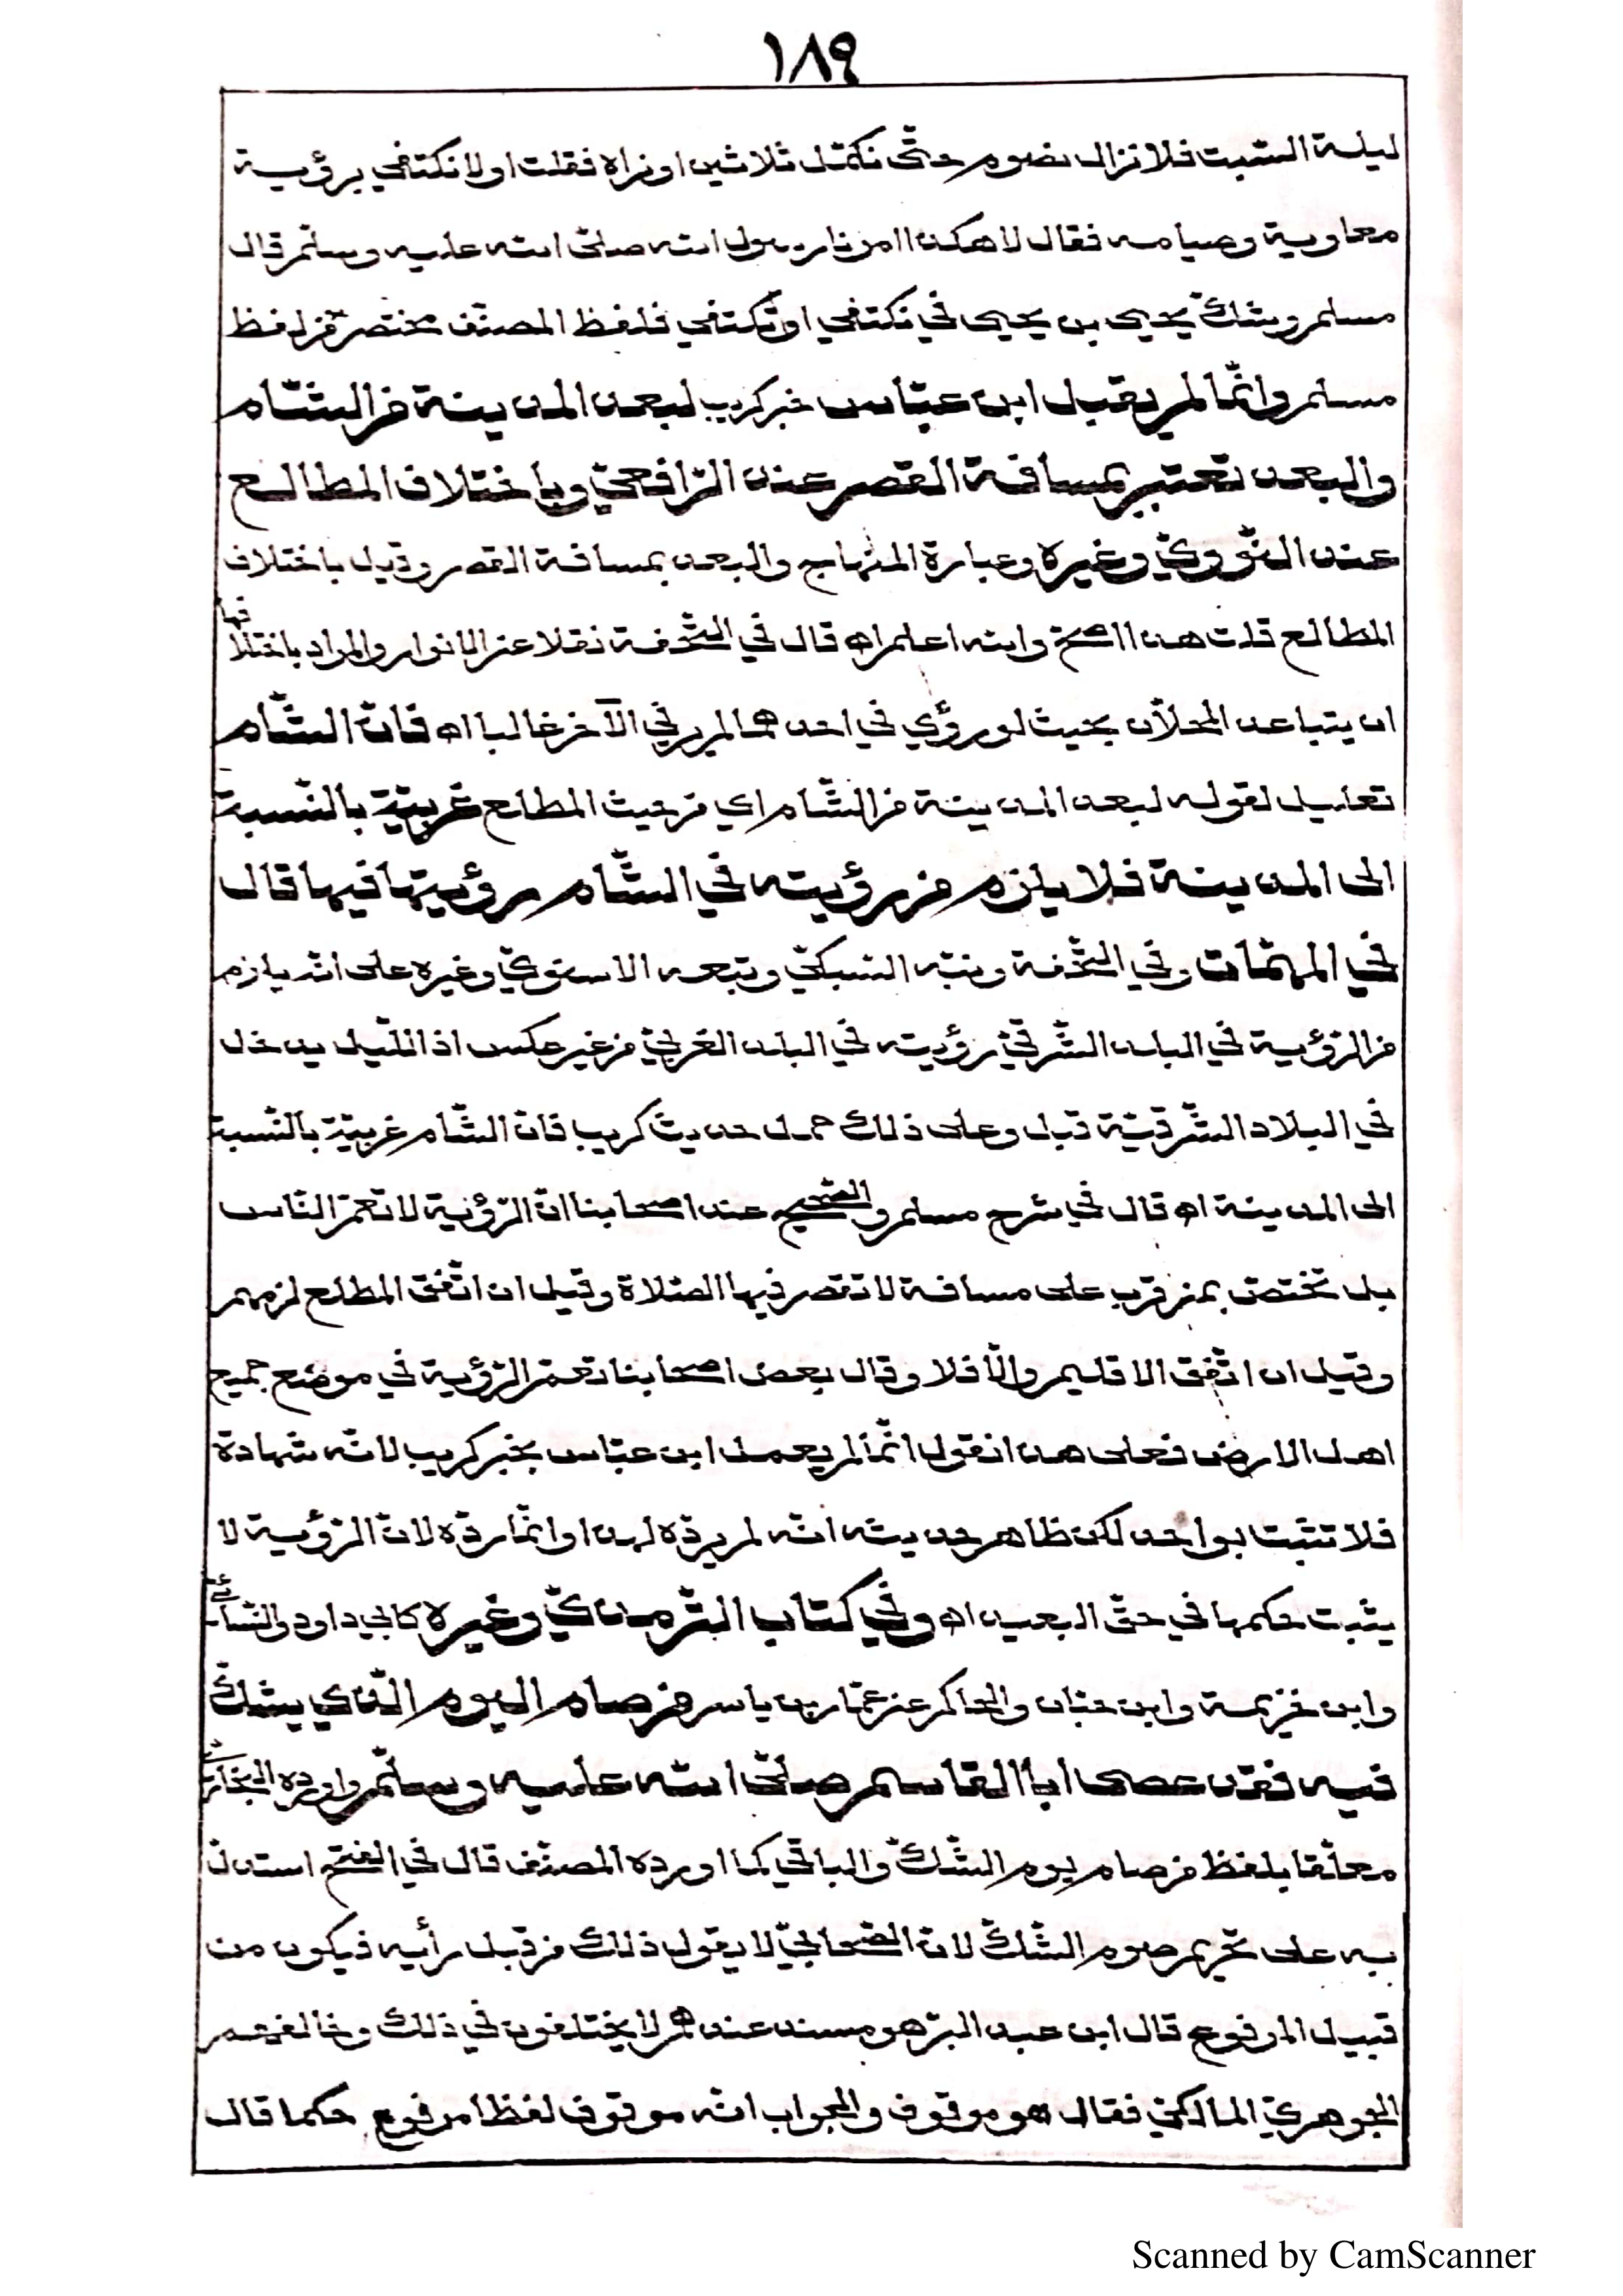 ١٨٩
ليلة السّبت فلا نزال نصوم حتّى نكمّل ثلاثين او نراه فقلت اولا نكتفي برؤية
معاوية وصيامه فقال لا هكذا امرنا رسول الله صلّى الله عليه وسلّم قال
مسلم وشكّ يحيى بن يحيى في نكتفي او تكتفي فلفظ المصنّف مختصر من لفظ
مسلم وانّما لم يقبل ابن عبّاس خبر كريب لبعد المدينة من الشّام
والبعد تعتبر بمسافة القصر عند الرّافعيّ وباختلاف المطالع
عند النّوويّ وغيره وعبارة المنهاج والبعد بمسافة القصر وقيل باختلاف
المطالع قلت هذا اصحّ والله اعلم اه قال في التّحفة نقلا عن الانوار والمراد باختلافها
ان يتباعد المحلّان بحيث لو رؤي في احدهما لم ير في الآخر غالبا اه فانّ الشّام
تعليل لقوله لبعد المدينة من الشّام اي من حيث المطلع غربيّة بالنّسبة
الى المدينة فلا يلزم من رؤيته في الشّام رؤيتها فيها قال
في المهمّات وفي التّحفة ونبّه السّبكيّ وتبعه الاسنويّ وغيره على انّه يلزم
من الرّؤية في البلد الشّرقيّ رؤيته في البلد الغربيّ من غير عكس اذ اللّيل يدخل
في البلاد الشّرقيّة قبل وعلى ذلك حمل حديث كريب فانّ الشّام غربيّة بالنّسبة
الى المدينة اه قال في شرح مسلم والصّحيح عند اصحابنا انّ الرّؤية لا تعمّ النّاس
بل تختصّ بمن قرب على مسافة لا تقصر فيها الصّلاة وقيل ان اتّفق المطلع لزمهم
وقيل ان اتّفق الاقليم والّا فلا وقال بعض اصحابنا تعمّ الرّؤية في موضع جميع
اهل الارض فعلى هذا نقول انّما لم يعمل ابن عبّاس بخبر كريب لانّه شهادة
فلا تثبت بواحد لكن ظاهر حديثه انّه لم يردّه لهذا وانّما ردّه لانّ الرّؤية لا
يثبت حكمها في حقّ البعيد اه وفي كتاب التّرمذيّ وغيره كابي داود والنّسائيّ
وابن خزيمة وابن حبّان والحاكم عن عمّار بن ياسر من صام اليوم الّذي يشكّ
فيه فقد عصى ابا القاسم صلّى الله عليه وسلّم واورده البخاريّ
معلّقا بلفظ من صام يوم الشّكّ والباقي كما اورده المصنّف قال في الفتح استدلّ
به على تحريم صوم الشّكّ لانّ الصّحابيّ لا يقول ذلك من قبل رأيه فيكون من
قبيل المرفوع قال ابن عبد البرّ هو مسند عندهم لا يختلفون في ذلك وخالفهم
الجوهريّ المالكيّ فقال هو موقوف والجواب انّه موقوف لفظا مرفوع حكما قال
Scanned by CamScanner